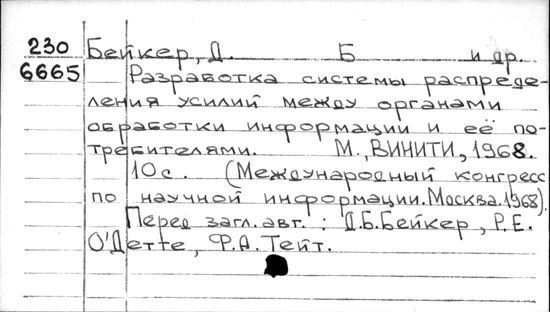 230 Бейкер, Д. Б и др.
6665 Разработка системы распреде-
ления усилий между органами
обработки информации и её по-
требителями. М., ВИНИТИ, 1968.
10с. (Международный конгресс
по научной информации. Москва. 1968).
Перед загл. авт. : Д.Б.Бейкер, Р.Е.
О'Детте, Ф.А.Тейт.